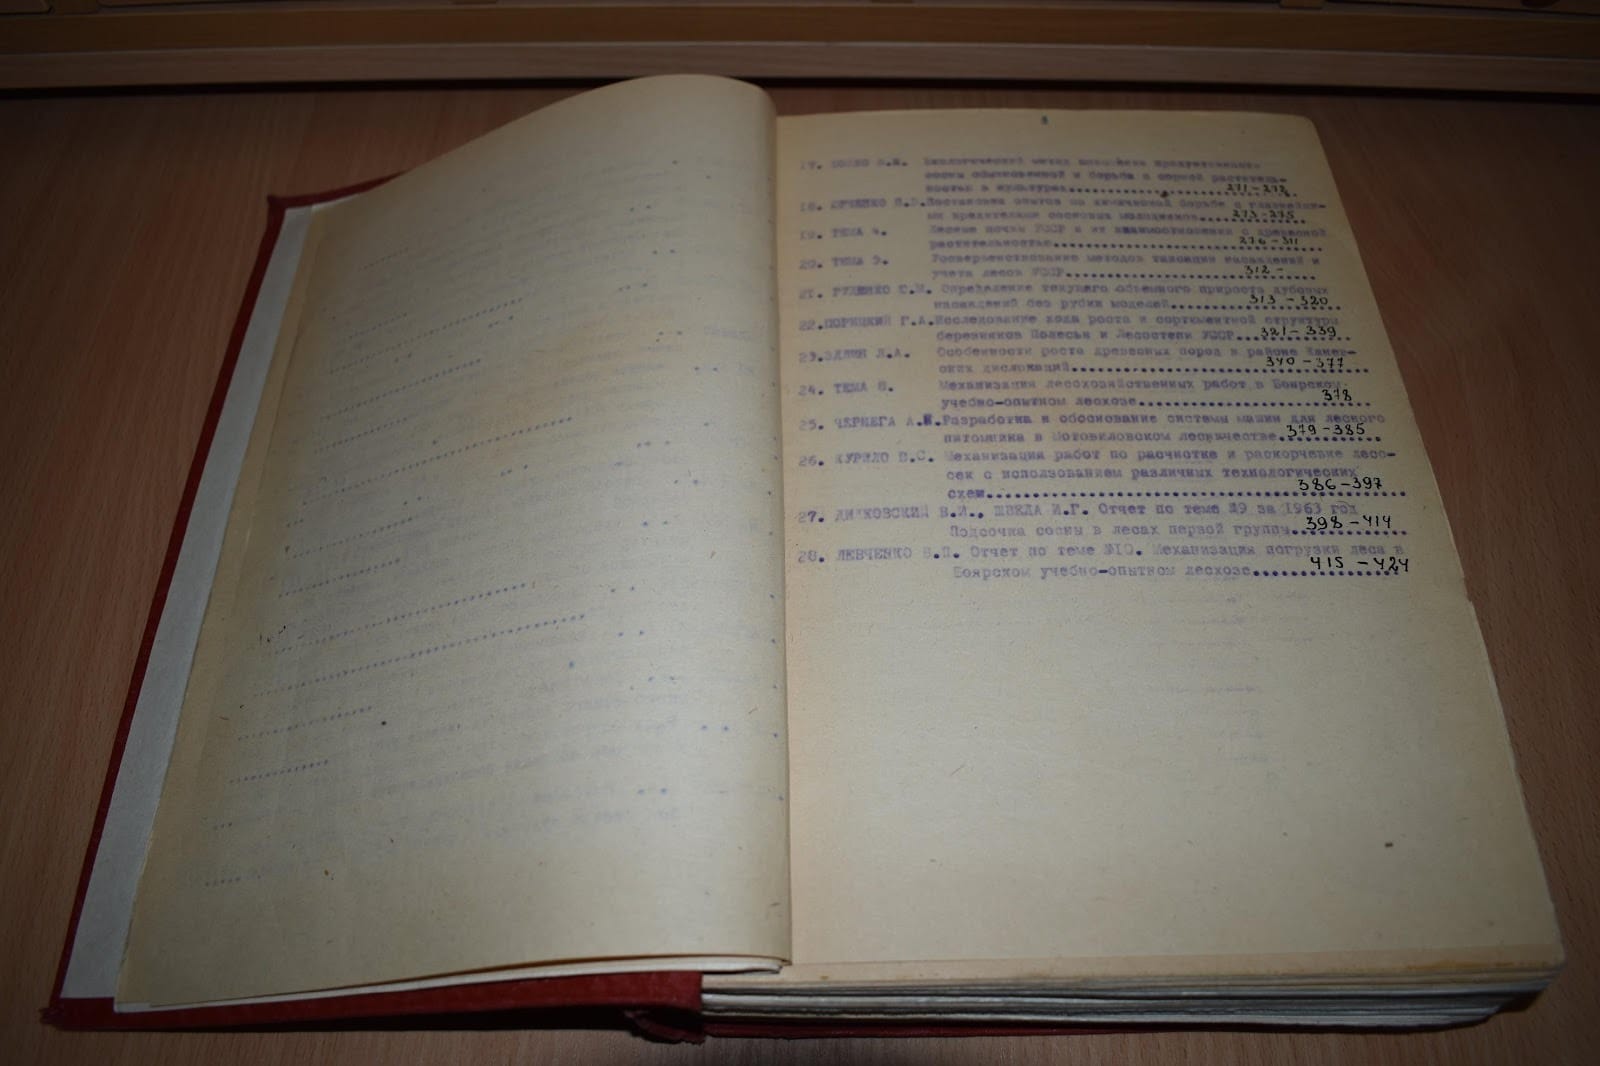 17. Биологический метод повышения продуктивнос-
сосны обыкновенной и борьба с сорной раститель-
ностью в культурах.................. 271-272
18. ЮРЧЕНКО Постановка опытов по химической борьбе с главнейши-
ми вредителями сосновых молодняков........ 273-275
19. ТЕМА 4. Лесные почвы УССР и их взаимоотношения с древесной
растительностью.................. 276-311
20. ТЕМА 5. Усовершенствование методов таксации насаждений и
учета лесов УССР.................. 312-
21. РУДЕНКО С.М. Определение текущего объемного прироста дубовых
насаждений без рубки моделей......... 313-320
22. ПОРИЦКИЙ Г.А. Исследование хода роста и сортиментной структуры
березняков Полесья и Лесостепи УССР... 321-339
23. Л.А. Особенности роста древесных пород в районе Канев-
ских дислокаций.................. 340-377
24. ТЕМА 8. Механизация лесохозяйственных работ в Боярском
учебно-опытном лесхозе.................. 378
25. ЧЕРНЕГА А.И. Разработка и обоснование системы машин для лесного
питомника в Мотовиловском лесничестве... 379-385
26. КУРИЛО В.С. Механизация работ по расчистке и раскорчевке лесо-
сек с использованием различных технологических
схем.................. 386-397
27. В.И., ШВЕДА И.Г. Отчет по теме №9 за 1963 год
Подсочка сосны в лесах первой группы... 398-414
28. ЛЕВЧЕНКО В.П. Отчет по теме №10. Механизация погрузки леса в
Боярском учебно-опытном лесхозе......... 415-424